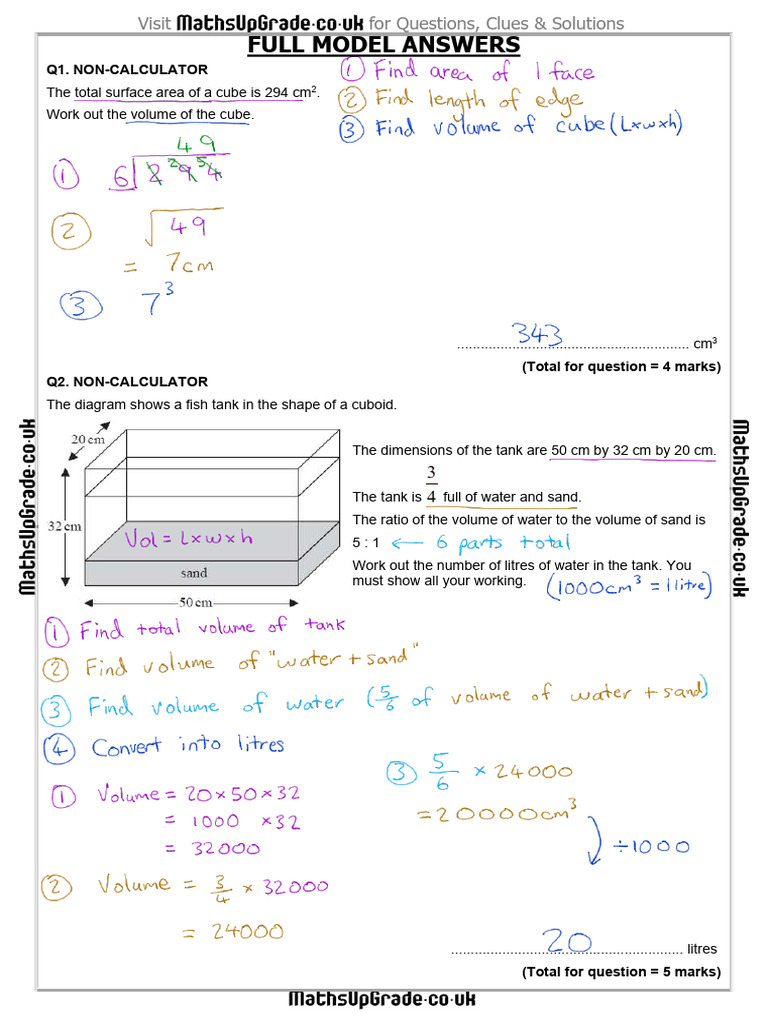 Visit MathsUpGrade·co·uk for Questions, Clues & Solutions
FULL MODEL ANSWERS
Q1. NON-CALCULATOR
The total surface area of a cube is 294 cm².
Work out the volume of the cube.
① Find area of 1 face
② Find length of edge
③ Find volume of cube (L×w×h)
49
① 6 2 ²9 ⁵4
② √49
= 7cm
③ 7³
343 cm³
(Total for question = 4 marks)
Q2. NON-CALCULATOR
The diagram shows a fish tank in the shape of a cuboid.
20 cm
32 cm
Vol = L×w×h
sand
50 cm
The dimensions of the tank are 50 cm by 32 cm by 20 cm.
The tank is 3/4 full of water and sand.
The ratio of the volume of water to the volume of sand is
5 : 1 ← 6 parts total
Work out the number of litres of water in the tank. You
must show all your working. (1000cm³ = 1 litre)
① Find total volume of tank
② Find volume of "water + sand"
③ Find volume of water (5/6 of volume of water + sand)
④ Convert into litres
① Volume = 20 × 50 × 32
= 1000 × 32
= 32000
② Volume = 3/4 × 32000
= 24000
③ 5/6 × 24000
= 20000cm³
÷1000
20 litres
(Total for question = 5 marks)
MathsUpGrade·co·uk
MathsUpGrade·co·uk
MathsUpGrade·co·uk